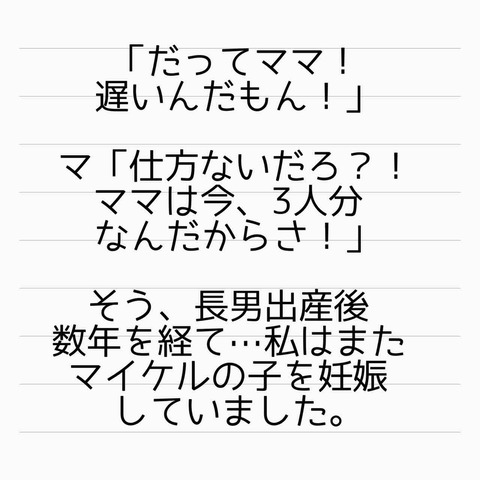 「だってママ！
遅いんだもん！」
マ「仕方ないだろ？！
ママは今、3人分
なんだからさ！」
そう、長男出産後
数年を経て…私はまた
マイケルの子を妊娠
していました。